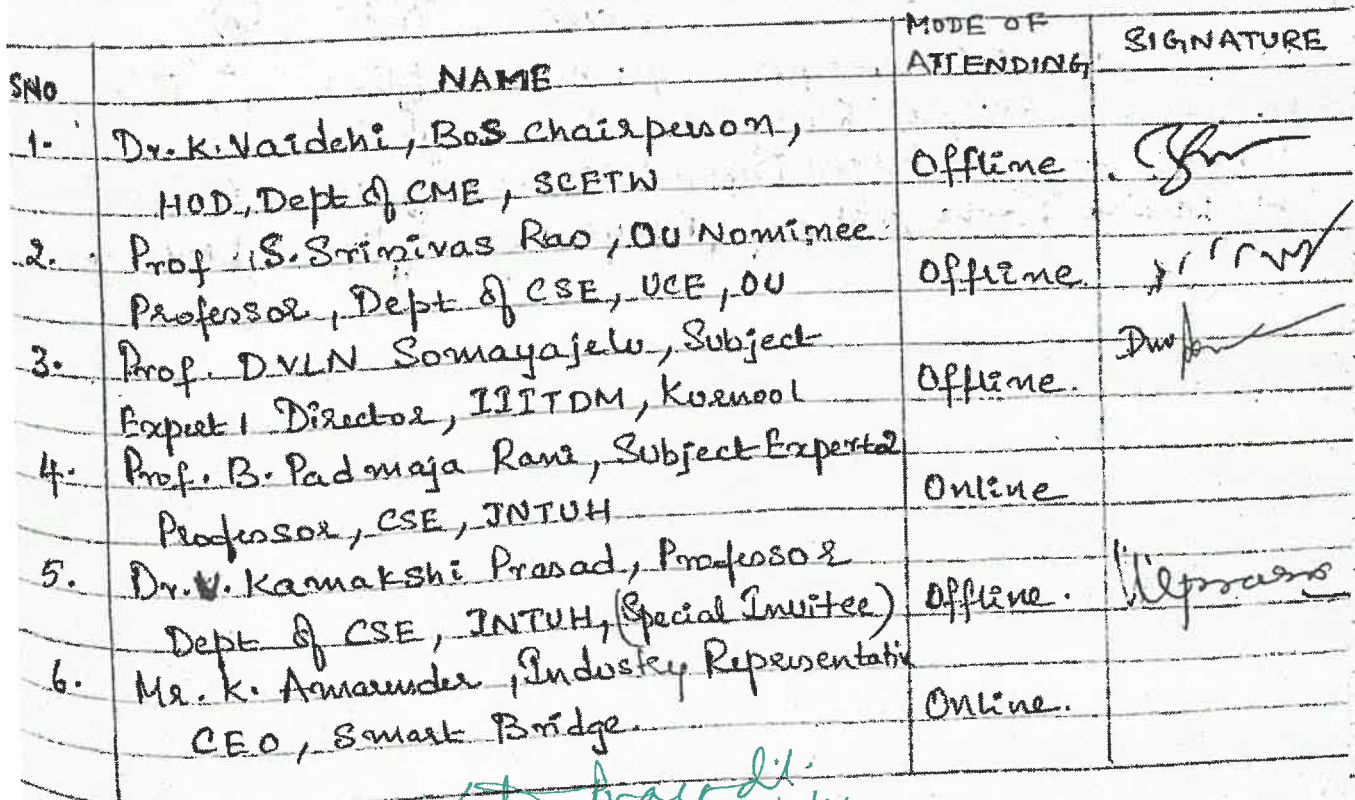 SNO NAME MODE OF ATTENDING SIGNATURE
1. Dr. K. Vaidehi, BoS Chairperson,
HOD, Dept of CME, SCETW Offline
2. Prof. S. Srinivas Rao, OU Nominee
Professor, Dept of CSE, UCE, OU Offline
3. Prof. DVLN Somayajelu, Subject
Expert 1 Director, IIITDM, Kurnool Offline.
4. Prof. B. Padmaja Rani, Subject Expert 2
Professor, CSE, JNTUH Online
5. Dr. V. Kamakshi Prasad, Professor
Dept of CSE, JNTUH, (Special Invitee) Offline.
6. Mr. K. Amarender, Industry Representativ
CEO, Smart Bridge. Online.